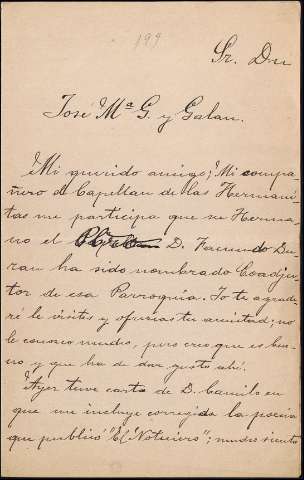 199
Sr. Dn
José Mª G. y Galan.
Mi querido amigo; Mi compa-
ñero el Capellan de las Hermani-
tas me participa que su Herma-
no el D. Facundo Du-
ran ha sido nombrado Coadju-
tor de esa Parroquia. Yo te agrade-
ré le visites y ofrezcas tu amistad; no
le conozco mucho, pero creo que es bue-
no y que ha de dar gusto ahí.
Ayer tuve carta de D. Camilo en
que me incluye corregida la poesía
que publicó "El Noticiero"; mucho siento